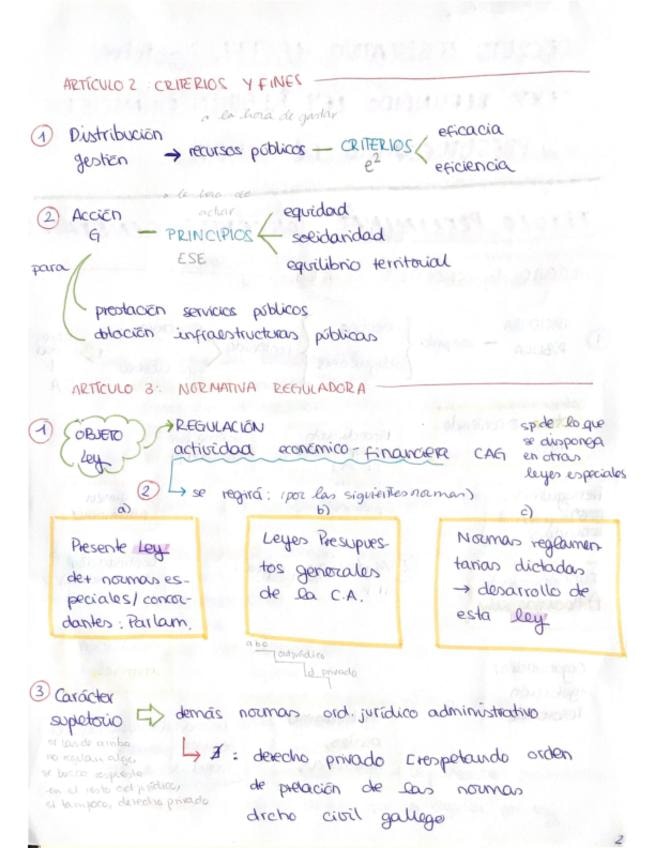 ARTÍCULO 2: CRITERIOS Y FINES
a la hora de gastar
① Distribución
gestión → recursos públicos — CRITERIOS
e²
eficacia
eficiencia
a la hora de
actuar
② Acción
G — PRINCIPIOS
ESE
equidad
solidaridad
equilibrio territorial
para
prestación servicios públicos
dotación infraestructuras públicas
ARTÍCULO 3: NORMATIVA REGULADORA
① OBJETO
Ley
→ REGULACIÓN
actividad económico-financiera CAG
s,p de lo que
se disponga
en otras
leyes especiales
② → se regirá: (por las siguientes normas)
a)
Presente Ley
de+ normas es-
peciales/concor-
dantes: Parlam.
b)
Leyes Presupues-
tos generales
de la C.A.
c)
Normas reglamen
tarias dictadas
→ desarrollo de
esta ley
abc
d privado
③ Carácter
supletorio ⇒ demás normas ord. jurídico administrativo
si las de arriba
no regulan algo,
se busca respuesta
en el resto del jurídico,
si tampoco, derecho privado
↳ ∄: derecho privado [respetando orden
de prelación de las normas
drcho civil gallego
2